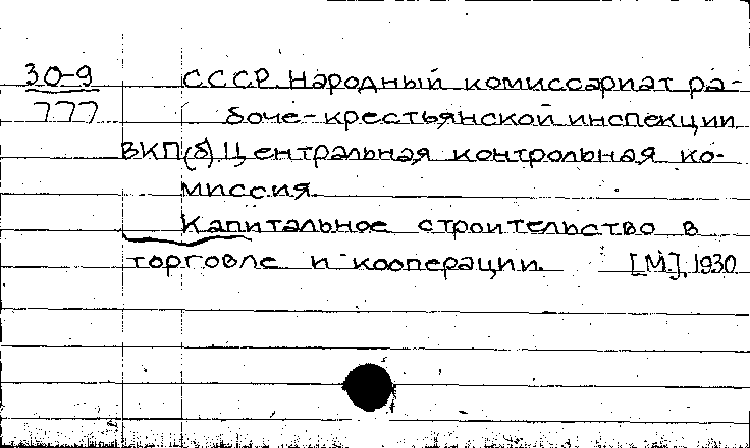 30-9 СССР. Народный комиссариат ра-
777 боче-крестьянской инспекции
ВКП(б). Центральная контрольная ко-
миссия.
Капитальное строительство в
торговле и кооперации. [М.], 1930